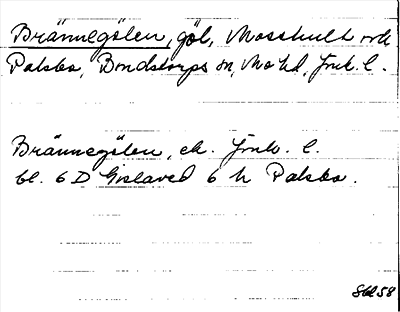 Brännegölen, göl, Mosshult och
Palsbo, Bondstorps sn, Mo hd, Jönk. l.
Brännegölen, ek. Jönk. l.
bl. 6 D Gislaved 6 h Palsbo.
Skl 58